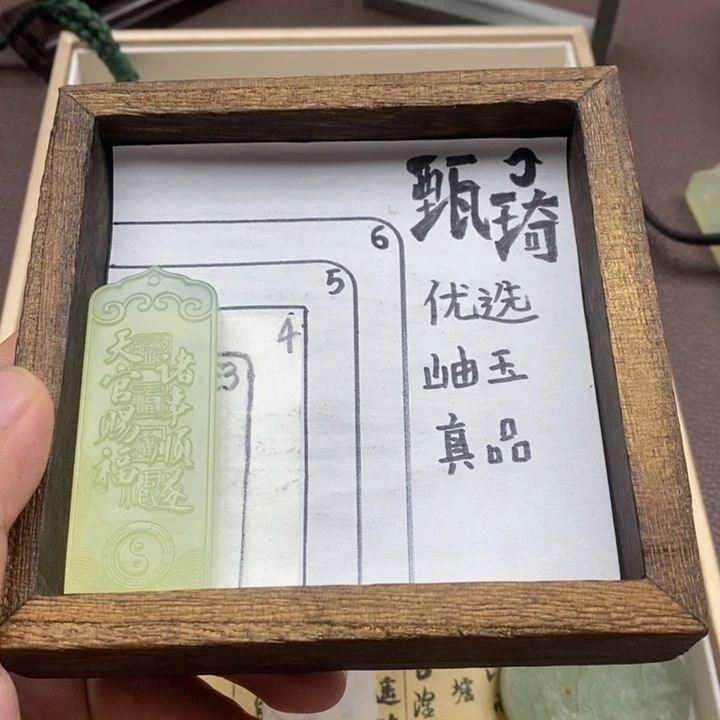 甄琦
优选
岫玉
真品
6
5
4
3
天官赐福
诸事顺遂